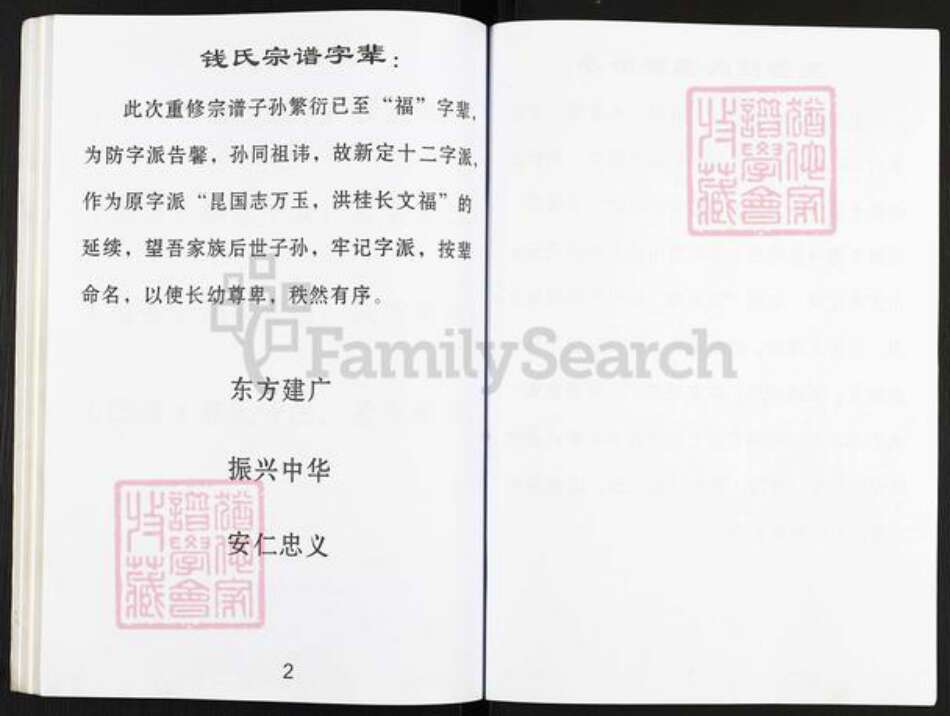 钱氏宗谱字辈：
此次重修宗谱子孙繁衍已至“福”字辈，
为防字派告馨，孙同祖讳，故新定十二字派，
作为原字派“昆国志万玉，洪桂长文福”的
延续，望吾家族后世子孙，牢记字派，按辈
命名，以使长幼尊卑，秩然有序。
FamilySearch
东方建广
振兴中华
安仁忠义
2
猶他家
譜學會
收藏
猶他家
譜學會
收藏